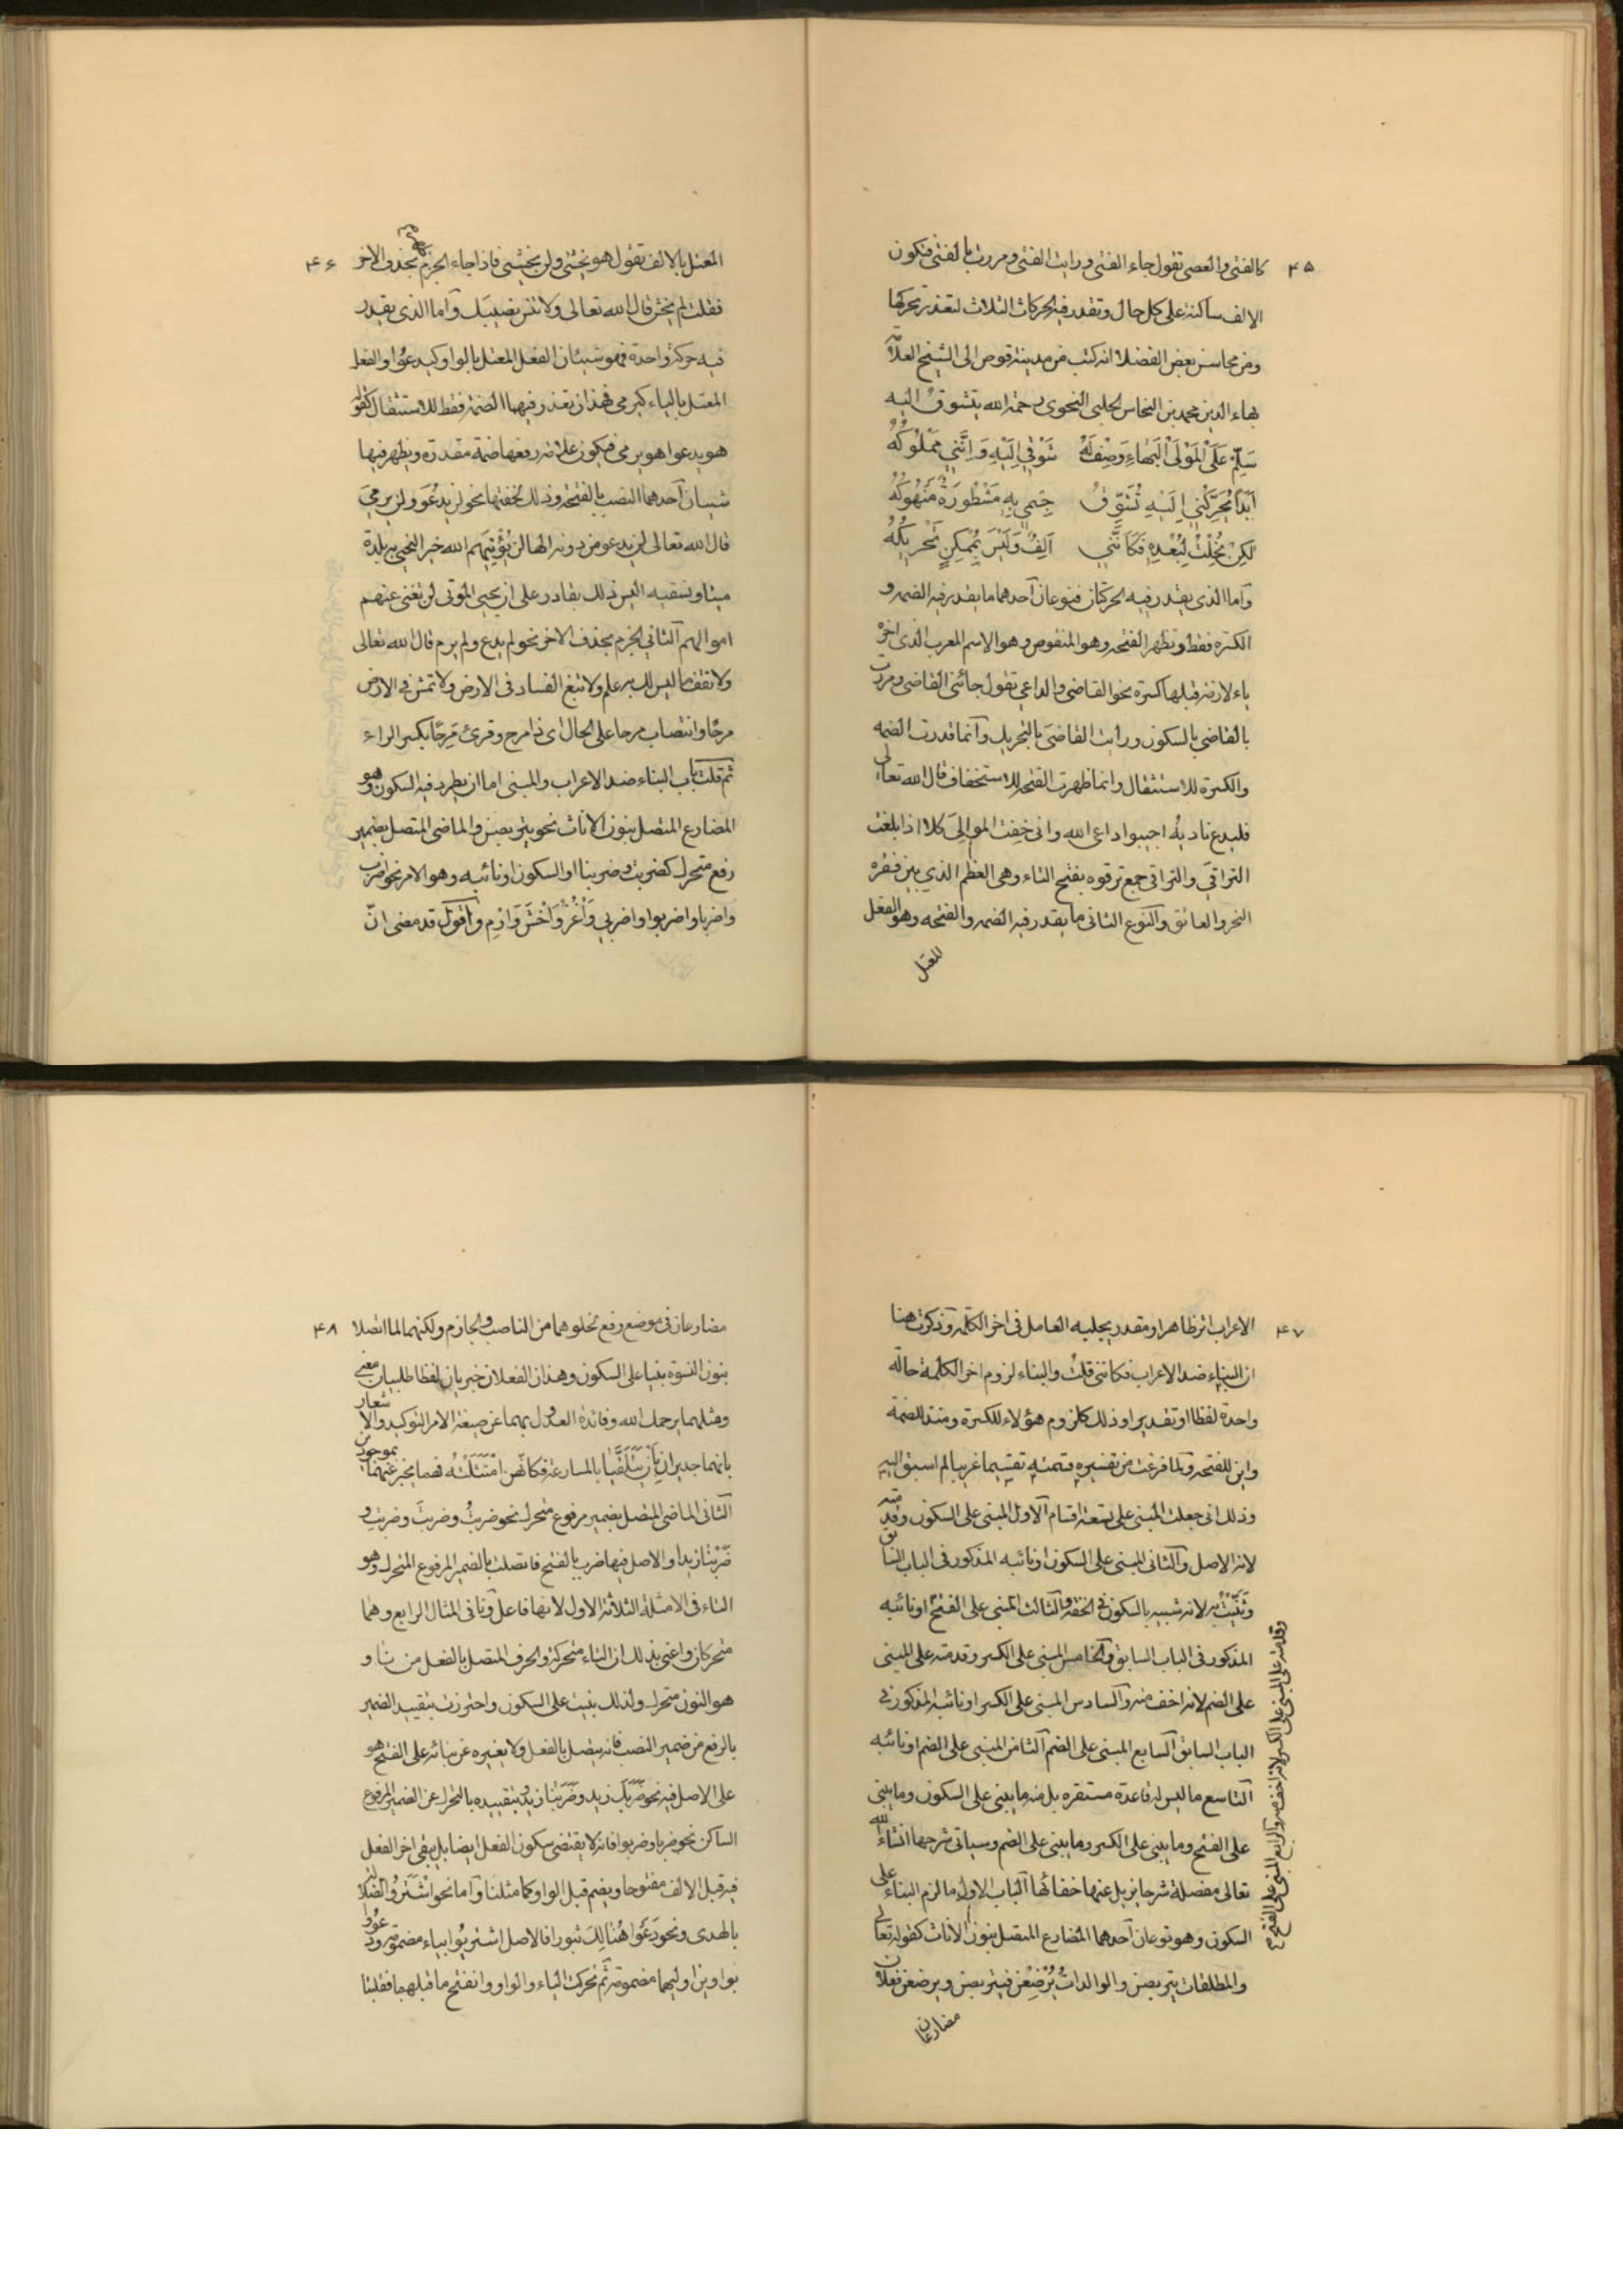 ۴۵
كالفتى والعصى تقول جاء الفتى ورايت الفتى ومررت بالفتى فتكون
الالف ساكنة على كل حال وتقدر فيه الحركات الثلاث لتعذر تحركها
ومن محاسن بعض الفضلا انه كتب من مدينة قوص الى الشيخ العلامة
بهاء الدين محمد بن النحاس الحلبى النحوى رحمة الله يتشوق اليه
سَلِّمْ عَلَى الْمَوْلَى الْبَهَاءِ وَصِفْ لَهُ شَوْقِي اِلَيْهِ وَاِنَّنِي مَمْلُوكُهُ
اَبَدًا يُحَرِّكُنِي اِلَيْهِ تَشَوُّقٌ جِسْمِي بِهِ مَشْطُورَةٌ مَنْهُوكُهُ
لكِنْ نَحُلْتُ لِبُعْدِهِ فَكَاَنَّنِي اَلِفٌ وَلَيْسَ بِمُمْكِنٍ تَحْرِيكُهُ
وآما الذى يقدر فيه الحركتان فنوعان آحدهما ما يقدر فيه الضمه و
الكسره فقط وتظهر الفتحه وهو المنقوص وهو الاسم المعرب الذى اخره
ياء لازمة قبلها كسرة نحو القاضى والداعى تقول جائنى القاضى ومررت
بالقاضى بالسكون ورايت القاضىَ بالتحريك وآنما قدرت الضمه
والكسرة للاستثقال وانما ظهرت الفتحه للاستخفاف قال الله تعالى
فليدع ناديهُ اجيبوا داعى الله وانى خفت الموالىَ كلا اذا بلغت
التراقىَ والتراقى جمع ترقوه بفتح التاء وهى العظم الذي بين ثغره
النحر والعاتق وآلنوع الثانى ما يقدر فيه الضمه والفتحه وهو الفعل
المعتل
۴۶
المعتل بالالف تقول هو يخشى ولن يخشى فاذا جاء الجزم بحذف الاخر
فقلت لم يخش قال الله تعالى ولا تنس نصيبك وآما الذى يقدر
فيه حركة واحدة فهو شيئان الفعل المعتل بالواو كيدعوا والفعل
المعتل بالياء كيرمى فهذان تقدر فيهما الضمة فقط للاستثقال كقوله
هو يدعوا هو يرمى فيكون علامة رفعها ضمة مقدرة ويظهر فيها
شيئان آحدهما النصب بالفتحه وذلك لخفتها نحو لن يدعُوَ ولن يرمىَ
قال الله تعالى لن يدعو من دونه الها لن يُؤتيهم الله خيرا لنحيى به بلدة
ميتا ونسقيه اليس ذلك بقادر على ان يحيى الموتى لن تغنى عنهم
اموالهم آلثانى الجزم بحذف الاخر نحو لم يدع ولم يرم قال الله تعالى
ولا تقف ما ليس لك به علم ولا تبغ الفساد فى الارض ولا تمش فى الارض
مرحًا وانتصاب مرحا على الحال اى ذا مرح وقرئ مَرِحًا بكسر الراء
ثم قلت باب البناء ضد الاعراب والمبنى اما ان يطرد فيه السكون وهو
المضارع المتصل بنون الاناث نحو يتربصن والماضى المتصل بضمير
رفع متحرك كضربت وضربنا او السكون او نائبه وهو الامر نحو اضرب
واضربا واضربوا واضربى وَاغْزُ وَاخْشَ وَارْمِ وآقول قد مضى انّ
۴۷
الاعراب اثر ظاهر او مقدر يجلبه العامل فى اخر الكلمه وذكرت هنا
ان البناء ضد الاعراب فكاننى قلت والبناء لزوم اخر الكلمة حالة
واحدة لفظا او تقديرا وذلك كلزوم هؤلاء للكسرة ومنذ للضمة
واين للفتحه ولما فرغت من تفسيره قسمته تقسيما غريبا لم اسبق اليه
وذلك انى جعلت المبنى على تسعة اقسام آلاول المبنى على السكون وقدمته
لانه الاصل وآلثانى المبنى على السكون او نائبه المذكور فى الباب السابق
وثنيت به لانه شبيه بالسكون فى الخفة وآلثالث المبنى على الفتح او نائبه
المذكور فى الباب السابق وآلخامس المبنى على الكسر وقدمته على المبنى
على الضم لانه اخف منه وآلسادس المبنى على الكسر او نائبه المذكور فى
الباب السابق آلسابع المبنى على الضم آلثامن المبنى على الضم او نائبه
آلتاسع ما ليس له قاعدة مستقره بل منه ما يبنى على السكون وما يبنى
على الفتح وما يبنى على الكسر وما يبنى على الضم وسياتى شرحها انشاء الله
تعالى مفصلة شرحا يزيل عنها خفائها آلباب الاول ما لزم البناء على
السكون وهو نوعان آحدهما المضارع المتصل بنون الاناث كقوله تعالى
والمطلقات يتربصن والوالداتُ يُرْضِعْن فيتربصن ويرضعن فعلان
مضارعان
وقدمته على المبنى على الكسر لانه اخف منه والرابع المبنى على الفتح
۴۸
مضارعان فى موضع رفع لخلوهما من الناصب والجازم ولكنهما لما اتصلا
بنون النسوة بنيا على السكون وهذان الفعلان خبريان لفظا طلبيان معنى
ومثلهما يرحمك الله وفائدة العدول بهما عن صيغة الامر التوكيد والاشعار
بانهما جديران بان يتلقيا بالمسارعة فكانهن امتثلنه فهما يخبر عنهما بموجودين
آلثانى الماضى المتصل بضمير مرفوع متحرك نحو ضربتُ وضربتَ وضربتِ و
ضَرَبْنا زيدا والاصل فيها ضرب بالفتح فاتصلت بالضمير المرفوع المتحرك وهو
التاء فى الامثلة الثلاثة الاول لانها فاعل ونا فى المثال الرابع وهما
متحركان واعنى بذلك ان التاء متحركة والحرف المتصل بالفعل من نا و
هو النون متحرك ولذلك بنيت على السكون واحترزت بتقييد الضمير
بالرفع من ضمير النصب فانه يتصل بالفعل ولا يغيره عن بنائه على الفتح هو
على الاصل فيه نحو ضَرَبَكَ زيد وضَرَبَنا زيدٌ وبتقييده بالتحرك عن الضمير المرفوع
الساكن نحو ضربا وضربوا فانه لا يقتضى سكون الفعل ايضا بل يبقى اخر الفعل
فيه قبل الالف مفتوحا ويضم قبل الواو كما مثلنا وآما نحو اشْتَرَوُا الضلالة
بالهدى ونحو دَعَوْا هُنَالِكَ ثبورا فالاصل اشتريُوا بياء مضمومة ودعوُوا
بواوين اوليهما مضمومة ثم تحركت الياء والواو وانفتح ما قبلهما فقلبتا